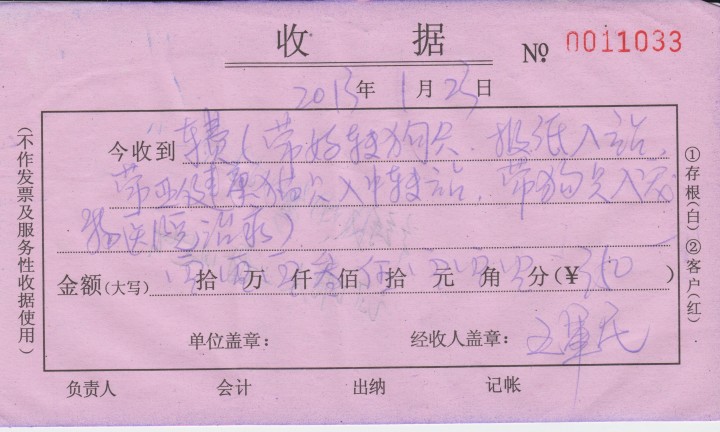 收 据
№ 0011033
2013年1月23日
今收到 车费(带好转狗只、报纸入站,
带亚健康猫只入中转站,带狗只入宠
物医院治疗)
金额(大写) 拾 万 仟 叁佰 拾 元 角 分(¥ 350 )
单位盖章: 经收人盖章:
负责人 会计 出纳 记帐
(不作发票及服务性收据使用)
①存根(白)②客户(红)